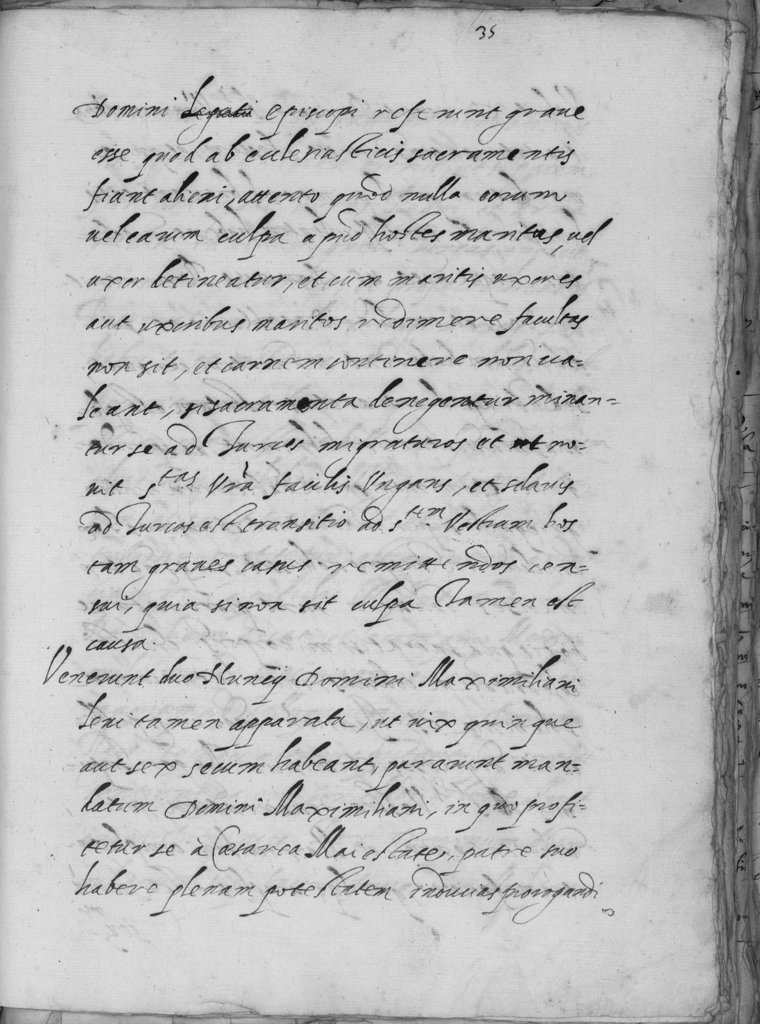 35
Domini Legati Episcopi referunt graue
esse quod ab ecclesiasticis sacramentis
fiant alieni, attento quod nulla eorum
uel earum culpa apud hostes maritus, uel
uxor detineatur, et cum maritis uxores
aut uxoribus maritos redimere facultas
non sit, et carnem continere non ua-
leant, si sacramenta denegentur minan-
tur se ad Turcos migraturos et ut no-
uit Stas Vra facilis Vngaris, et sclauis
ad Turcos est transitio ad Stem Vestram hos
tam graues casus remittendos cen-
sui, quia si non sit culpa Tamen est
causa.
Venerunt duo Nuncij Domini Maximiliani
leui tamen apparatu, ut uix quinque
aut sex secum habeant, pararunt man-
datum Domini Maximiliani, in quo profi-
tetur se à Cæsarea Maiestate, patre suo
habere plenam potestatem inducias prorogandi